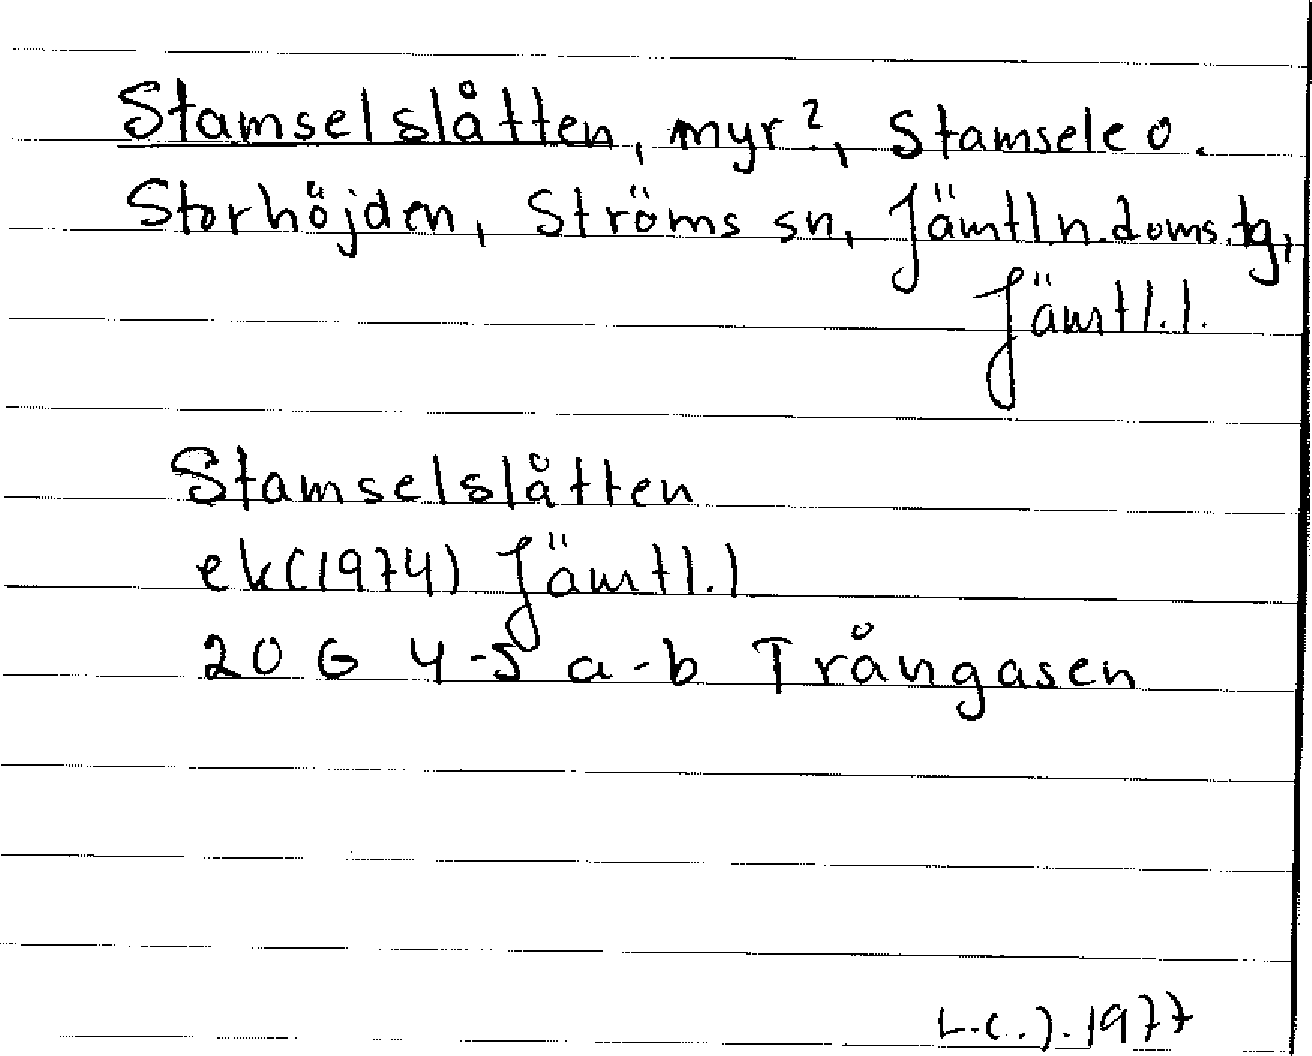 Stamselslåtten, myr?, Stamsele o.
Storhöjden, Ströms sn, Jämtl.n.doms.tg,
Jämtl.l.
Stamselslåtten
ek(1974) Jämtl.l
20 G 4-5 a-b Trångasen
1977